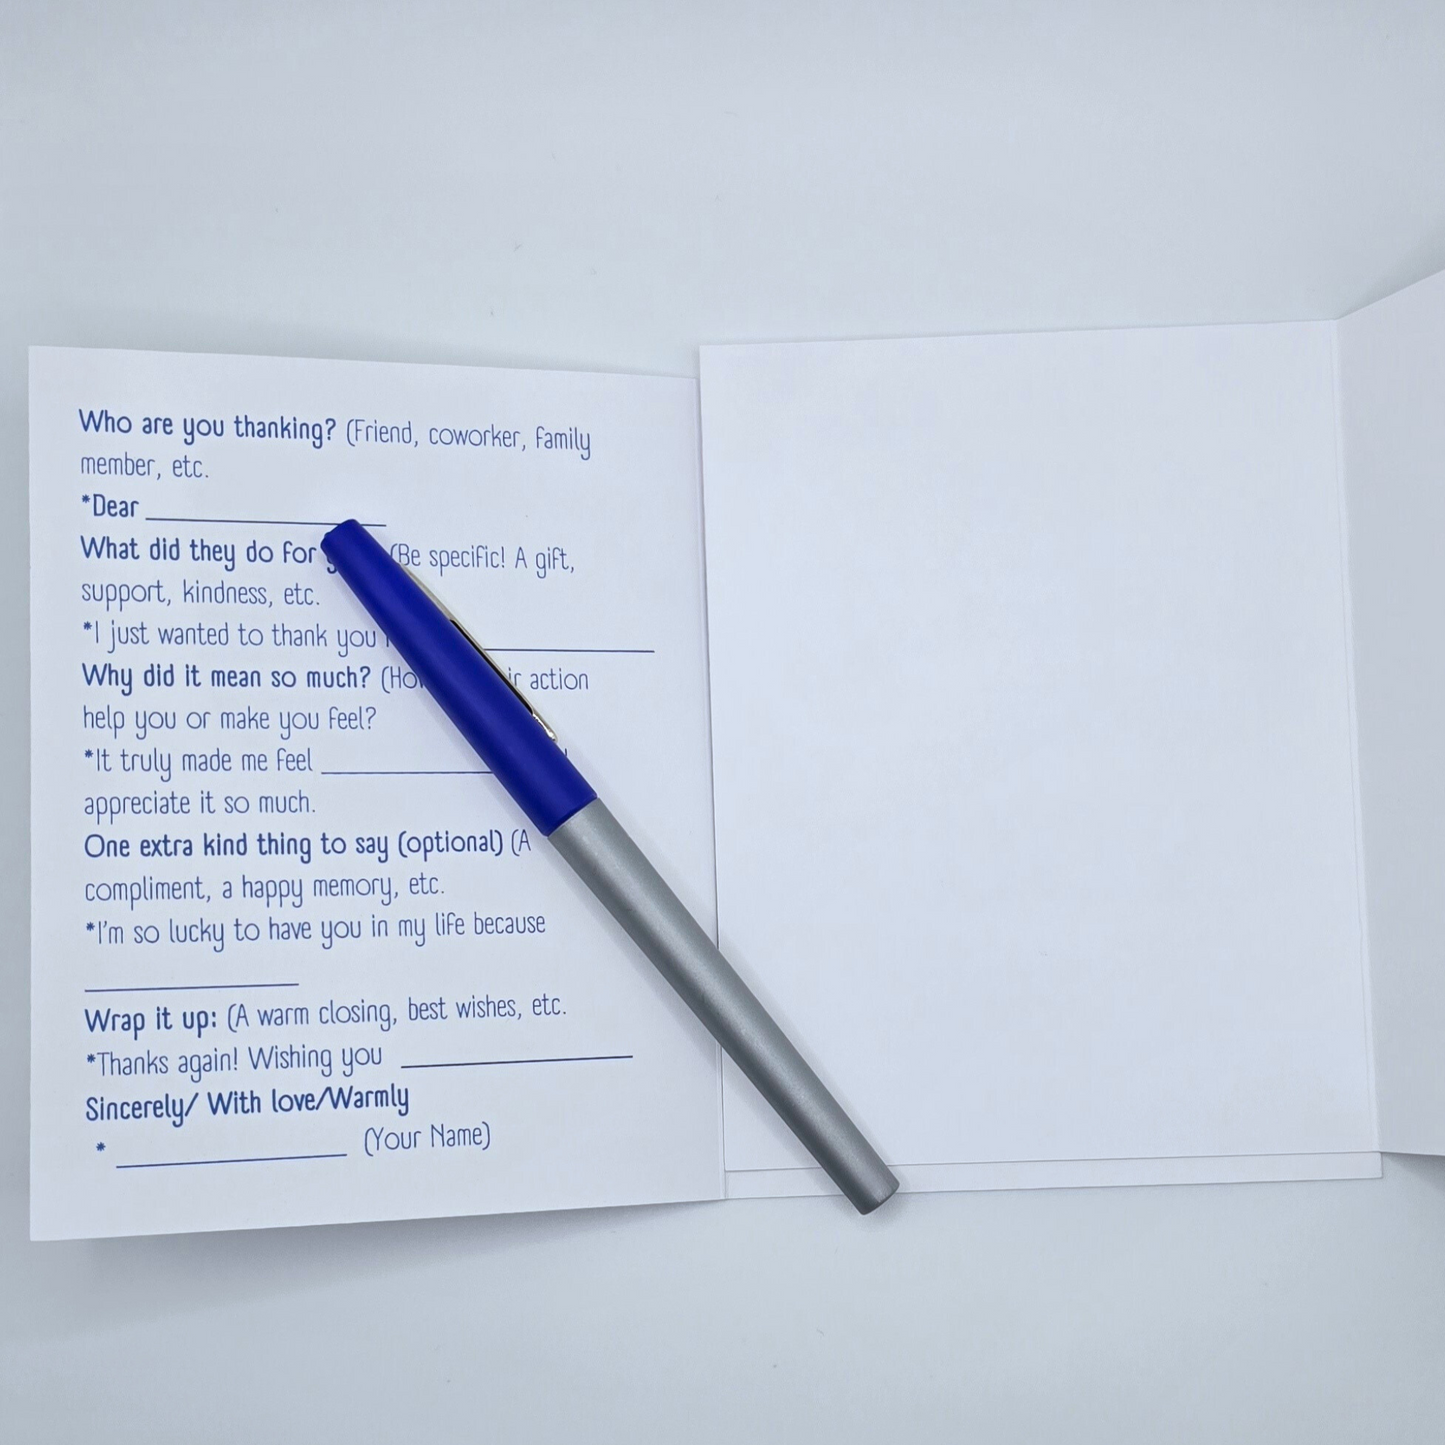 Who are you thanking? (Friend, coworker, family
member, etc.
*Dear ____________
What did they do for (Be specific! A gift,
support, kindness, etc.
*I just wanted to thank you ____________
Why did it mean so much? action
help you or make you feel?
*It truly made me feel ____________
appreciate it so much.
One extra kind thing to say (optional) (A
compliment, a happy memory, etc.
*I'm so lucky to have you in my life because
____________
Wrap it up: (A warm closing, best wishes, etc.
*Thanks again! Wishing you ____________
Sincerely/ With love/Warmly
* ____________ (Your Name)